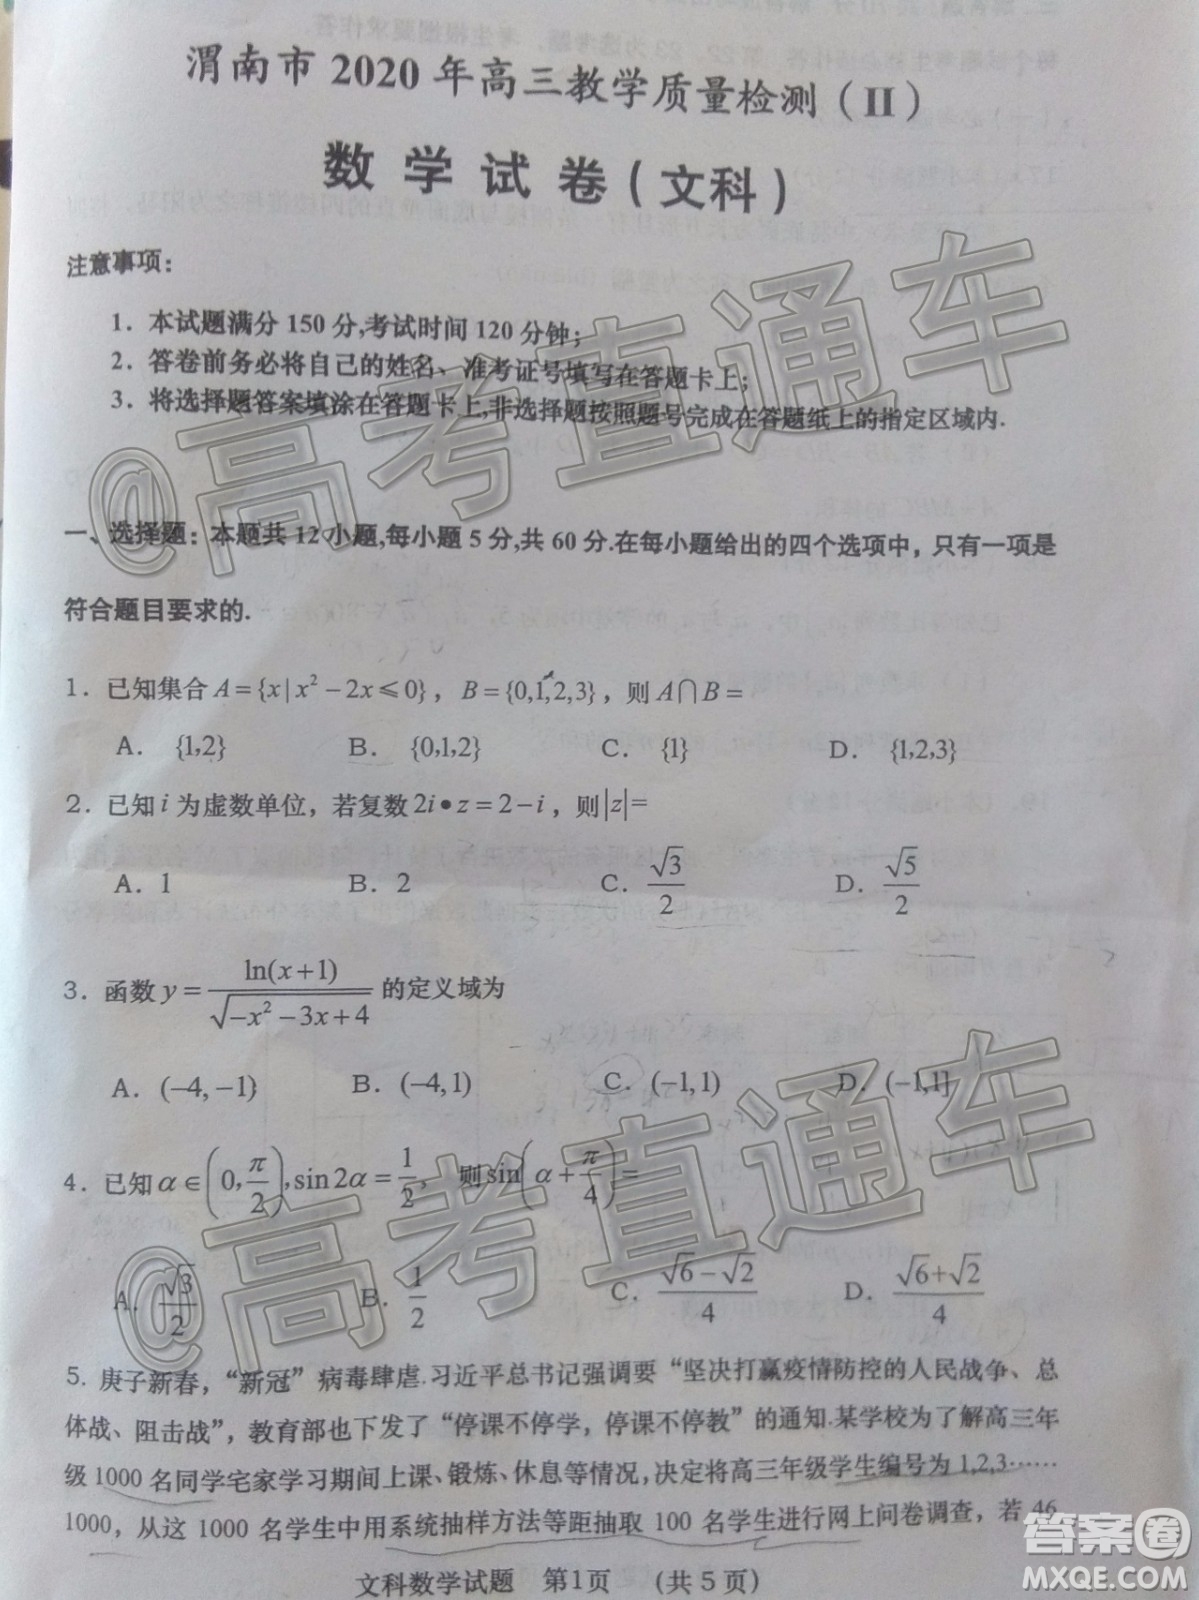 渭南市 2020 年高三教学质量检测（II）
数 学 试 卷（文科）
注意事项：
1．本试题满分 150 分,考试时间 120 分钟；
2．答卷前务必将自己的姓名、准考证号填写在答题卡上；
3．将选择题答案填涂在答题卡上,非选择题按照题号完成在答题纸上的指定区域内.
一、选择题：本题共 12 小题,每小题 5 分,共 60 分.在每小题给出的四个选项中，只有一项是
符合题目要求的.
1．已知集合 A={x|x²−2x⩽0}，B={0,1,2,3}，则 A∩B=
A． {1,2} B． {0,1,2} C． {1} D． {1,2,3}
2．已知 i 为虚数单位，若复数 2i•z=2−i，则|z|=
A．1 B．2 C．√3/2 D．√5/2
3．函数 y=ln(x+1)/√(−x²−3x+4) 的定义域为
A．(−4,−1) B．(−4,1) C．(−1,1) D．(−1,1]
4．已知 α∈(0,π/2),sin2α=1/2， 则sin(α+π/4)=
A．√3/2 B．1/2 C．(√6−√2)/4 D．(√6+√2)/4
5．庚子新春，“新冠”病毒肆虐.习近平总书记强调要“坚决打赢疫情防控的人民战争、总
体战、阻击战”，教育部也下发了“停课不停学，停课不停教”的通知.某学校为了解高三年
级 1000 名同学宅家学习期间上课、锻炼、休息等情况，决定将高三年级学生编号为 1,2,3……
1000，从这 1000 名学生中用系统抽样方法等距抽取 100 名学生进行网上问卷调查，若 46
文科数学试题 第1页 （共 5 页）
@高考直通车
@高考直通车
答案圈
MXQE.COM